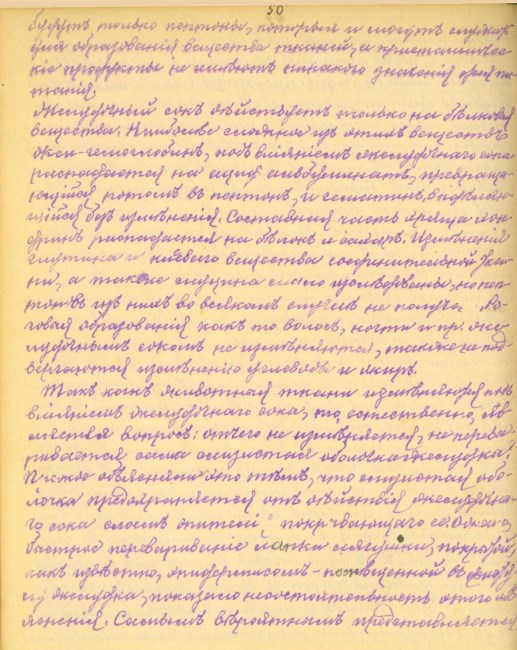 50
будутъ только пептоны, которые и могутъ служить
для образованія вещества тканей, а кристалличес-
кіе продукты не имѣютъ никакого значенія для пи-
танія.
Желудочный сокъ дѣйствуетъ только на бѣлковыя
вещества. Наиболѣе сложное изъ этихъ веществъ
окси-гемоглобинъ, подъ вліяніемъ желудочнаго сока
распадается на ацид альбуминатъ, превраща-
ющійся потомъ въ пептонъ, и гематинъ,
щійся безъ измѣненія. Составная часть хряща хон-
дринъ распадается на бѣлокъ и сахаръ. Измѣненія
глутина и клейкаго вещества соединительной тка-
ни, а также муцина мало изслѣдованы, но пеп-
тоновъ изъ нихъ во всякомъ случаѣ не получ. Ро-
говыя образованія какъ то волосъ, ногти и пр. же-
лудочнымъ сокомъ не измѣняются, также не под-
вергаются измѣненію углеводы и жиръ.
Такъ какъ животныя ткани измѣняются подъ
вліяніемъ желудочнаго сока, то, естественно, явл
ляется вопросъ: отчего не измѣняется, не перева
ривается сама слизистая оболочка желудка?
Прежде объясняли это тѣмъ, что слизистая обо-
лочка предохраняется отъ дѣйствія желудочна-
го сока слоемъ эпителія покрывающаго ее. Однако,
быстрое перевариваніе лапки лягушки, покрытой,
какъ извѣстно, эпидермисомъ - помѣщенной въ фистулу
желудка, показало несостоятельность этого объ
ясненія. Самымъ вѣроятнымъ представляется